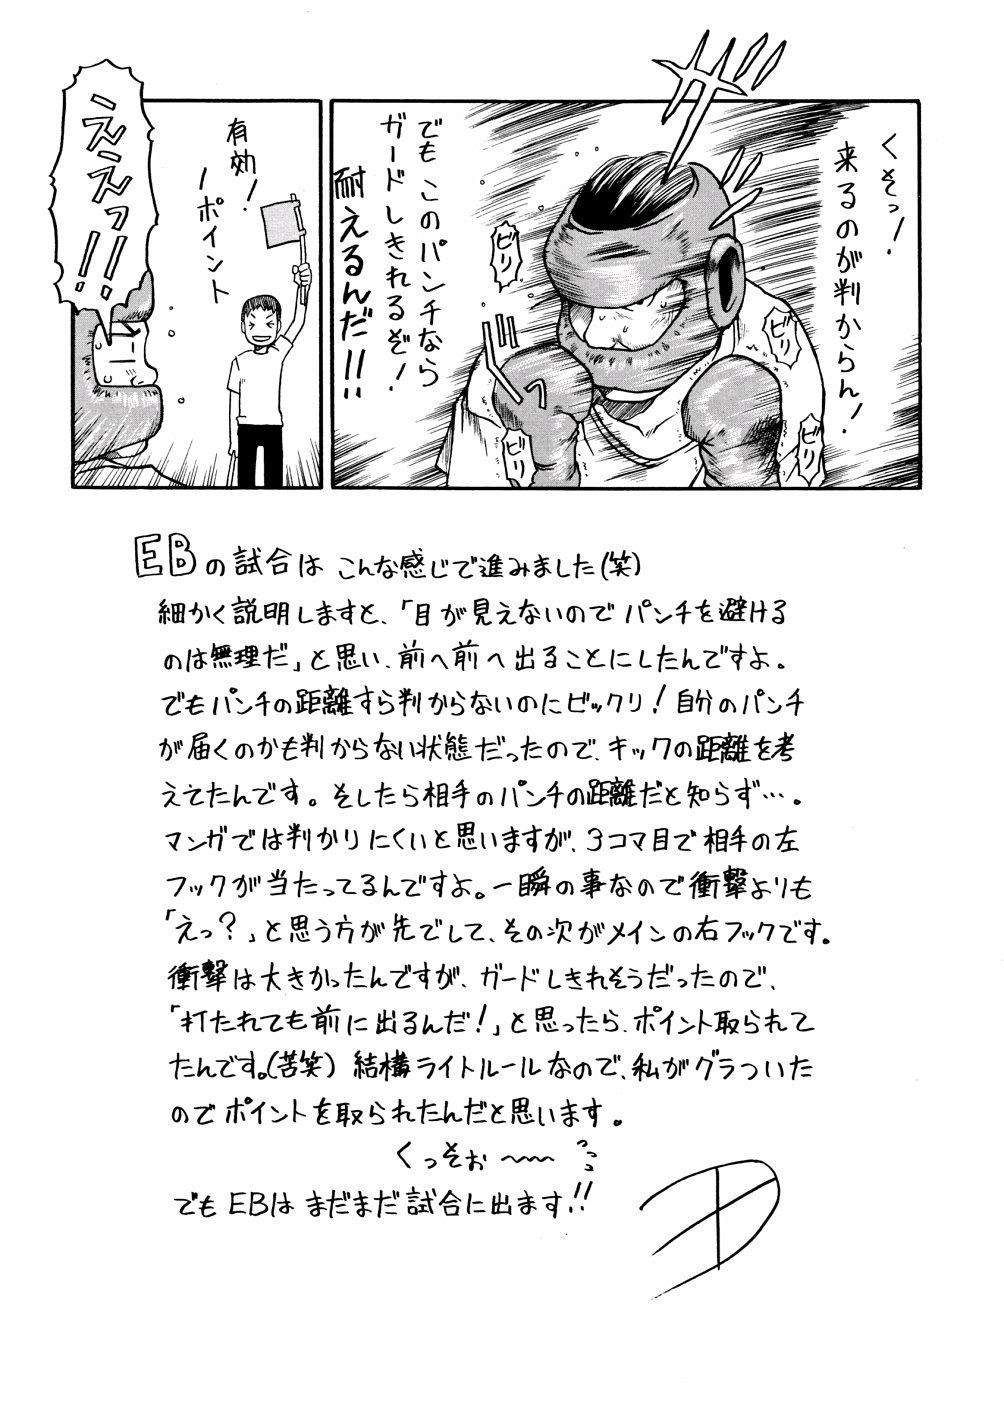 くそっ!
来るのが判からん!
ガッ
でも このパンチなら
ガードしきれるぞ!
耐えるんだ!!
ビリ
ビリ
ビリ
有効!
1ポイント
ええっ!!
EBの試合は こんな感じで進みました(笑)
細かく説明しますと、「目が見えないのでパンチを避ける
のは無理だ」と思い、前へ前へ出ることにしたんですよ。
でもパンチの距離すら判からないのにビックリ!自分のパンチ
が届くのかも判からない状態だったので、キックの距離を考
えてたんです。そしたら相手のパンチの距離だと知らず…。
マンガでは判かりにくいと思いますが、3コマ目で相手の左
フックが当たってるんですよ。一瞬の事なので衝撃よりも
「えっ?」と思う方が先でして、その次がメインの右フックです。
衝撃は大きかったんですが、ガードしきれそうだったので、
「打たれても前に出るんだ!」と思ったら、ポイント取られて
たんです。(苦笑) 結構ライトルールなので、私がグラついた
のでポイントを取られたんだと思います。
くっそぉ〜〜〜 っっっ
でもEBは まだまだ試合に出ます!!